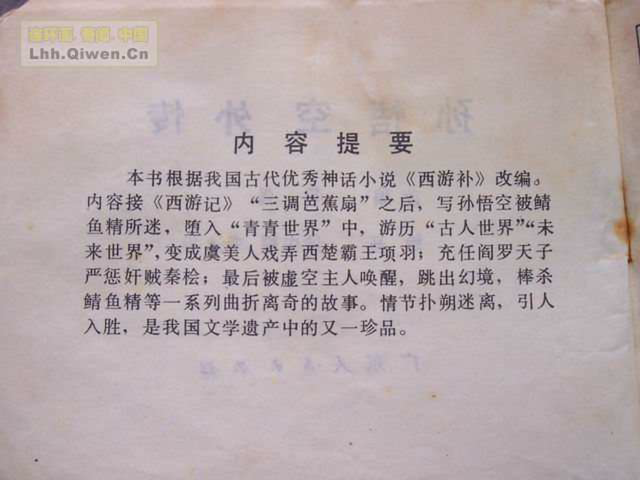 连环画·奇闻·中国
Lhh.Qiwen.Cn
孙悟空外传
内容提要
本书根据我国古代优秀神话小说《西游补》改编。
内容接《西游记》“三调芭蕉扇”之后，写孙悟空被鲭
鱼精所迷，堕入“青青世界”中，游历“古人世界”“未
来世界”，变成虞美人戏弄西楚霸王项羽；充任阎罗天子
严惩奸贼秦桧；最后被虚空主人唤醒，跳出幻境，棒杀
鲭鱼精等一系列曲折离奇的故事。情节扑朔迷离，引人
入胜，是我国文学遗产中的又一珍品。